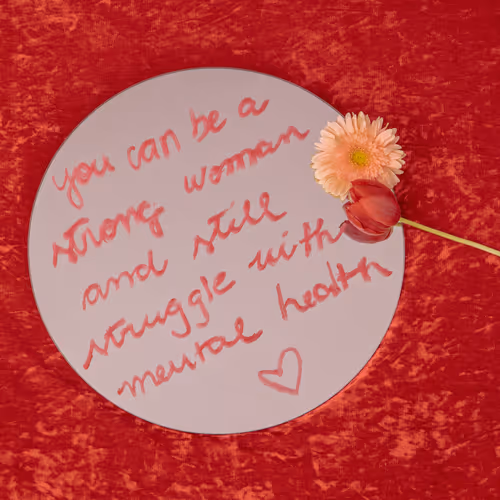 you can be a
strong woman
and still
struggle with
mental health